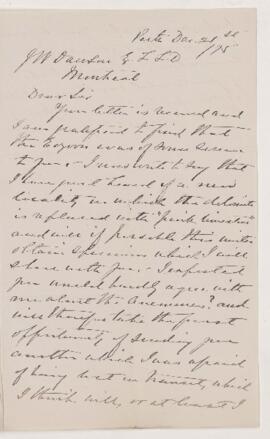 Perth Dec. 21st /75
J W Dawson Esq L L D
Montreal
Dear Sir
Your letter is received and
I am gratified to find that
the Eozoon was of some service
to you. I now write to say that
I have just heard of a new
locality in which the dolomite
is replaced with
and will if possible this winter
obtain specimens which I will
share with you. I expected
you would hardly agree with
me about the ? and
will therefore take the first
opportunity of sending you
another which I was afraid
of being lost in transit, which
I think will, or at least I